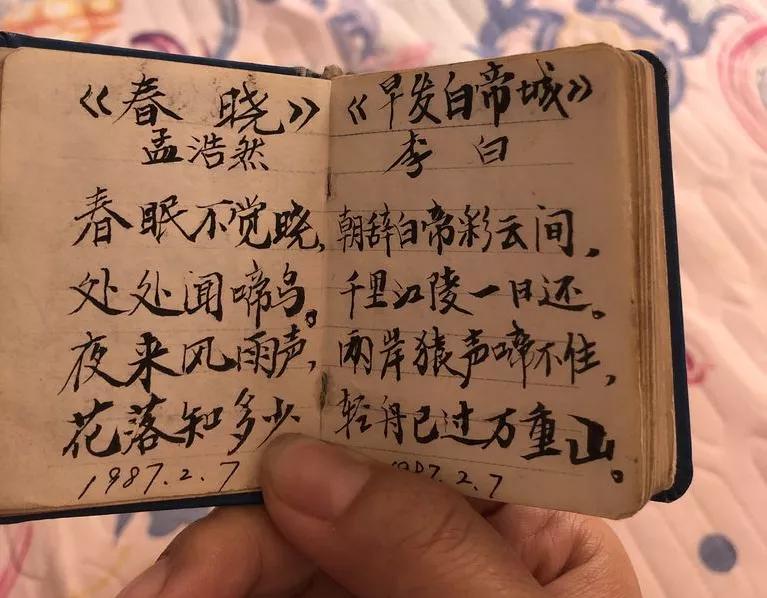 《春 晓》
孟浩然
春眠不觉晓,
处处闻啼鸟。
夜来风雨声,
花落知多少
1987.2.7
《早发白帝城》
李 白
朝辞白帝彩云间,
千里江陵一日还。
两岸猿声啼不住,
轻舟已过万重山。
1987.2.7